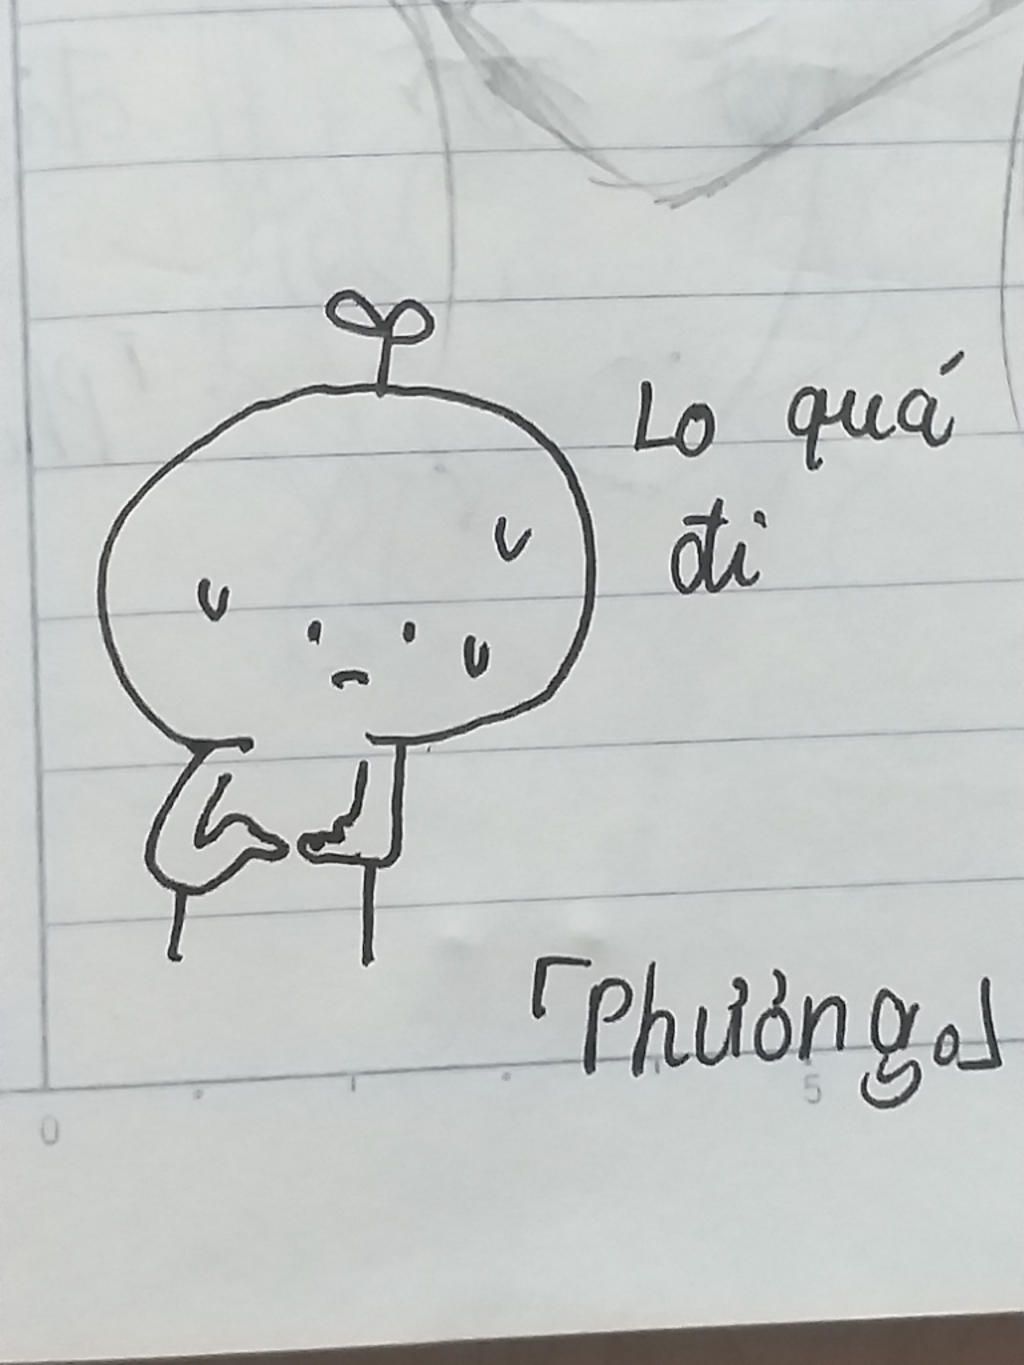 Lo quá
đi
「Phưởng。」
0 5